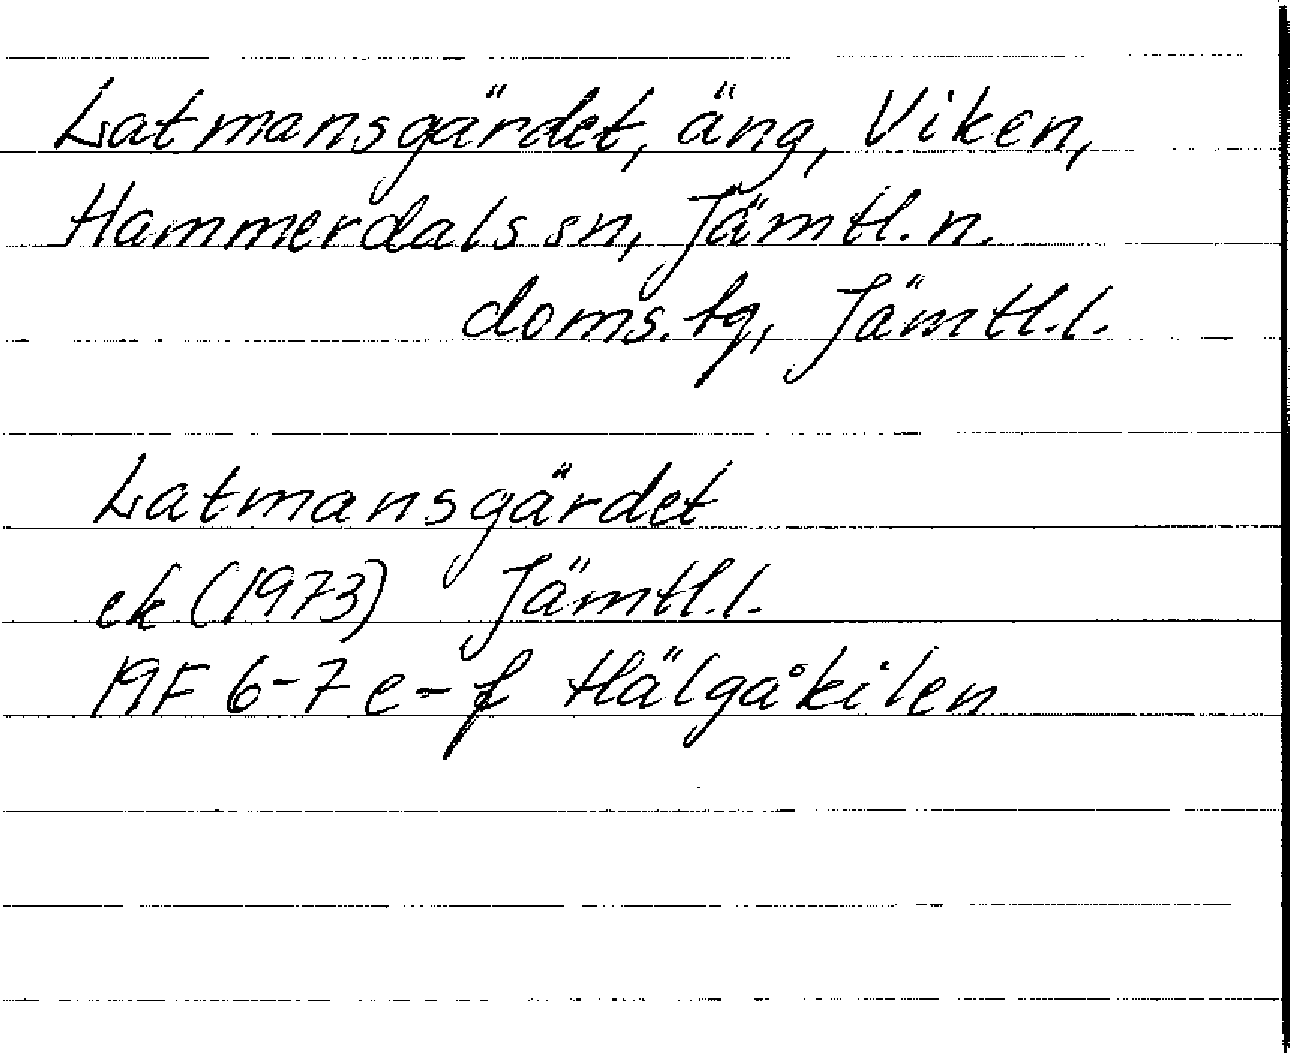 Latmansgärdet, äng, Viken,
Hammerdals sn, Jämtl. n.
doms. tg, Jämtl. l.
Latmansgärdet
ek (1973) Jämtl. l.
19F 6-7 e-f Hälgåkilen